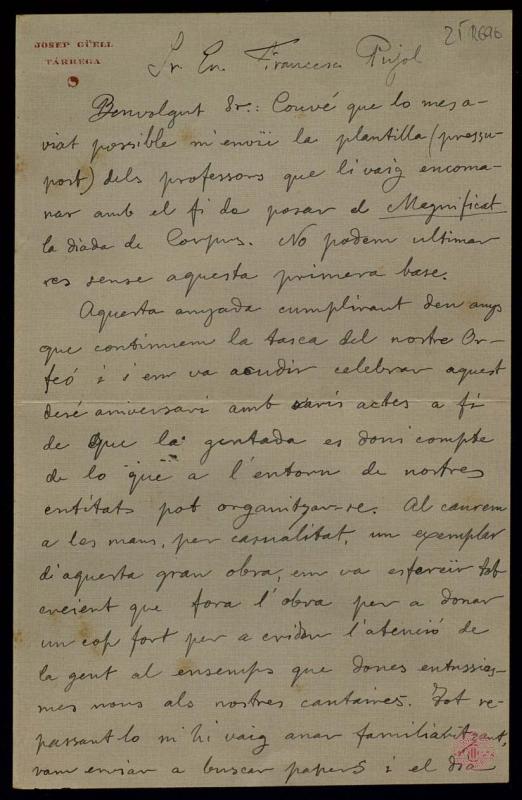 JOSEP GÜELL
TÁRREGA
21 R696
Sr. En Francesc Pujol
Benvolgut Sr.: Convé que lo mes a-
viat possible m'enviï la plantilla (pressu-
post) dels professors que li vaig encoma-
nar amb el fi de posar el Magnificat
la diada de Corpus. No podem ultimar
res sense aquesta primera base.
Aquesta anyada cumplirant deu anys
que continuem la tasca del nostre Or-
feó i i em va acudir celebrar aquest
desé aniversari amb varis actes a fi
de que la gentada es doni compte
de lo que a l'entorn de nostres
entitats pot organitzar-se. Al caurem
a les mans, per casualitat, un exemplar
d'aquesta gran obra, em va esfereïr tot
creient que fora l'obra per a donar
un cop fort per a cridar l'atenció de
la gent al ensemps que dones entussias-
mes nous als nostres cantaires. Tot re-
passantlo m'hi vaig anar familiaritzant,
vam enviar a buscar papers i el dia